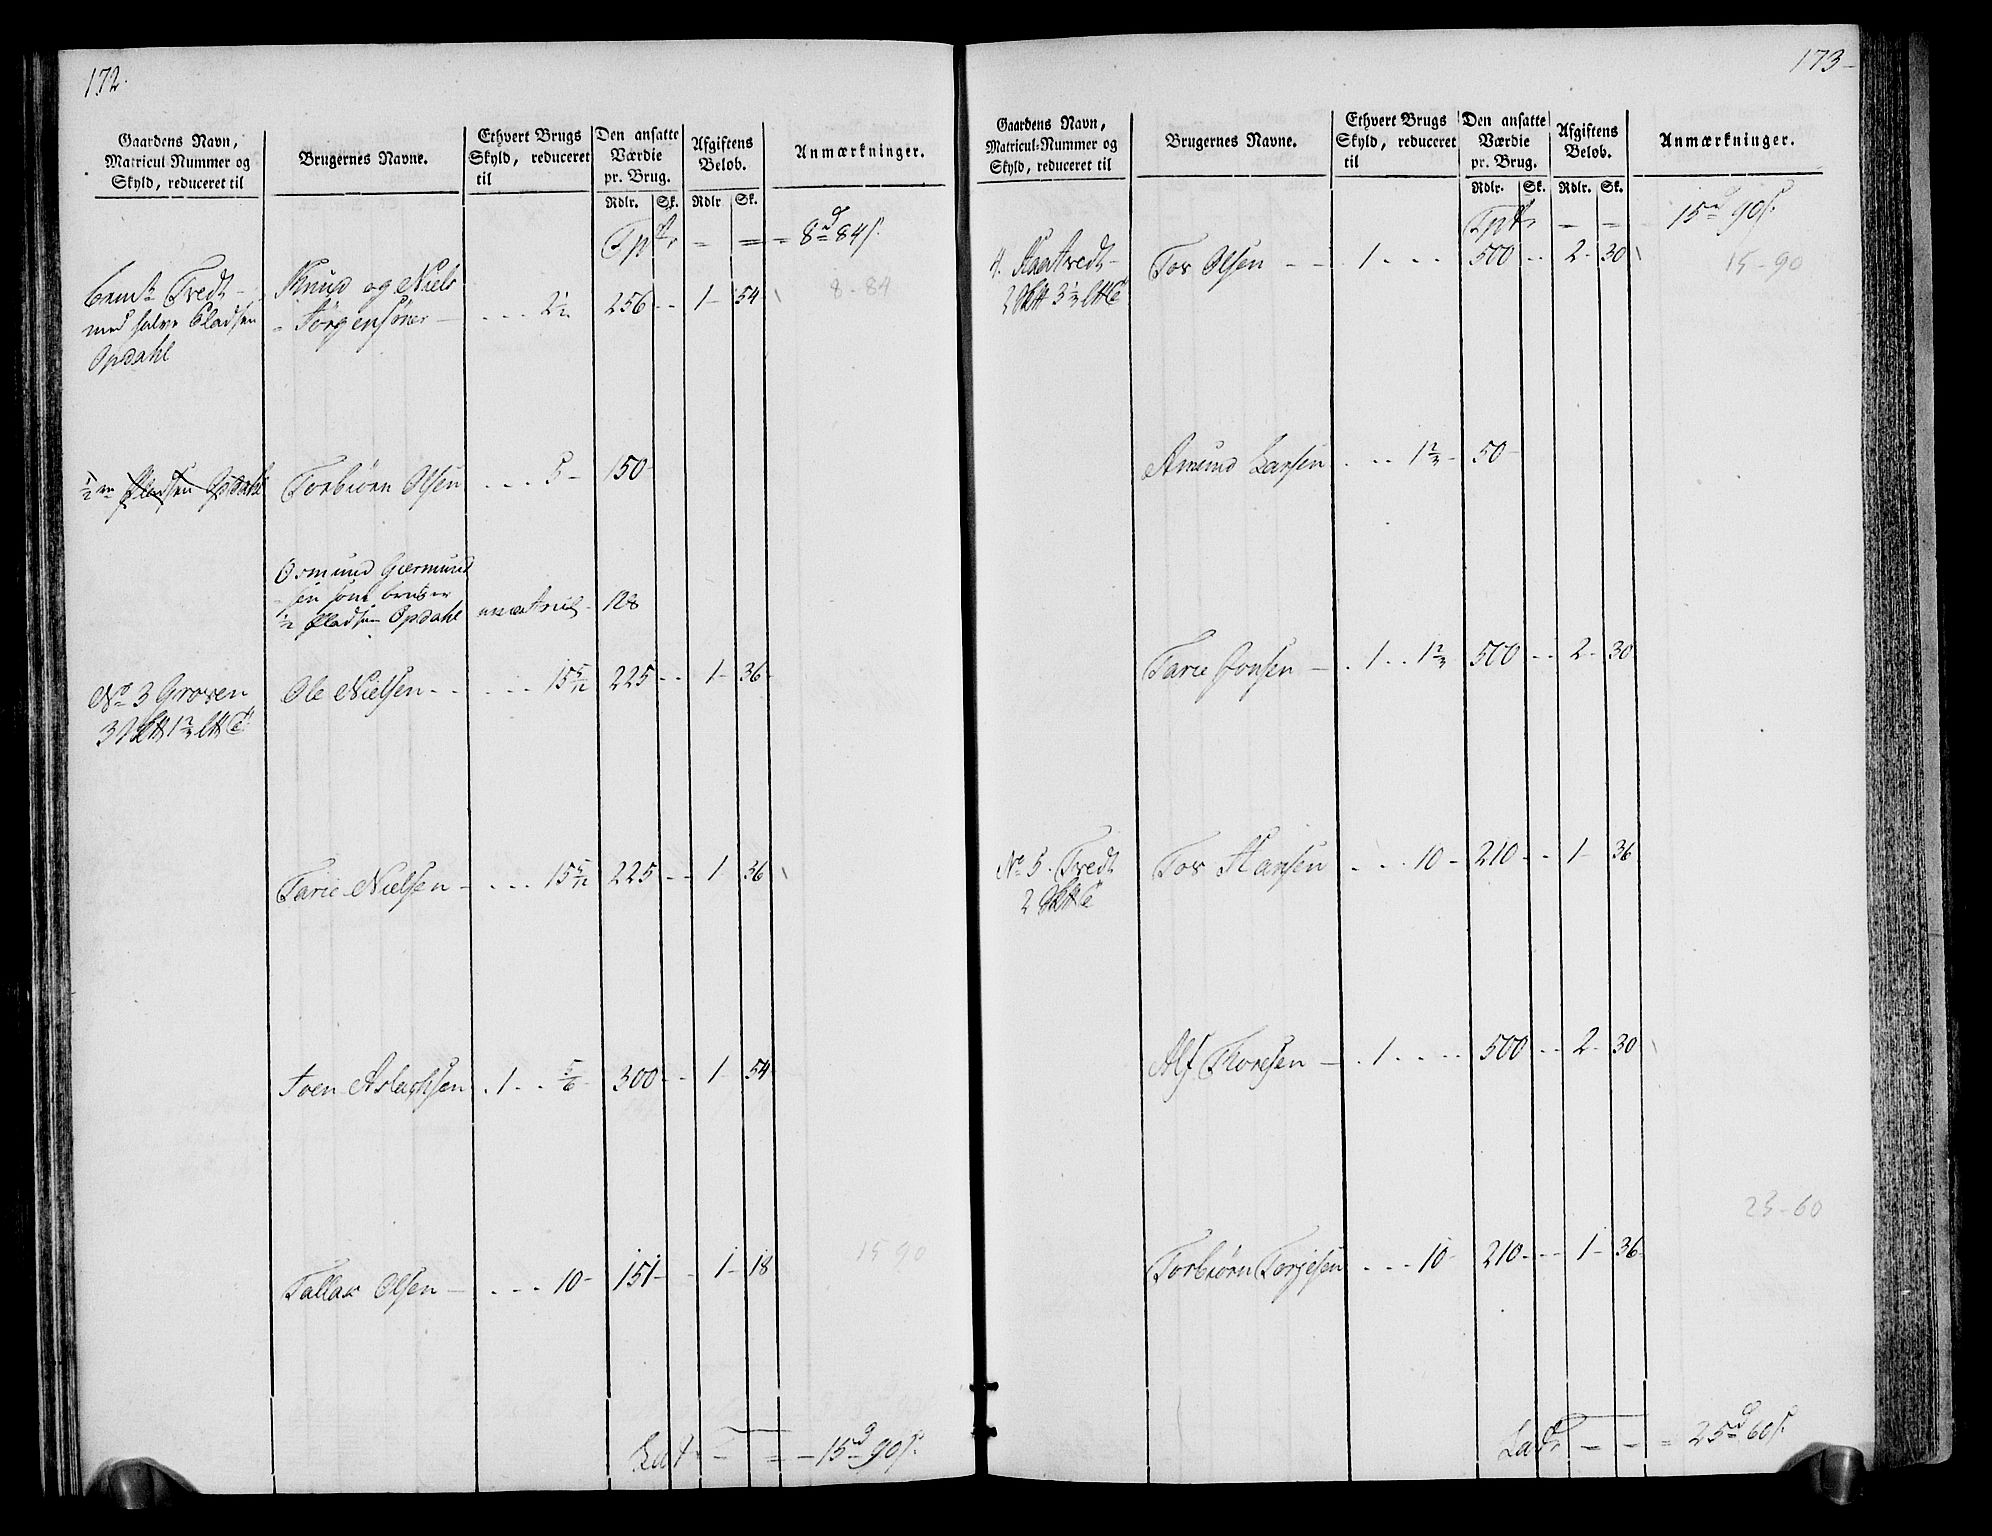 172.
Gaardens Navn,
Matricul Nummer og
Skyld, reduceret til
Brugernes Navne.
Ethvert Brugs
Skyld, reduceret
til
Den ansatte
Værdie
pr. Brug.
Afgiftens
Beløb.
Anmærkninger.
Rdlr. Sk. Rdlr Sk.
8 84
Tredt Knud og Niels 2 1/2 256 1 54 8-84
med halve Pladsen Jørgensøner
Opdahl
1/2 Pladsen Opdahl Torbiørn Olsen 5 150
Osmund Giermund
sen som bruger
1/2 Pladsen Opdahl 128
No 3 Groven Ole Nielsen 15 5/12 225 1 36
Tarie Nielsen 15 5/12 225 1 36
Sven Aslachsen 1 5/6 300 1 54
Tallax Olsen 10 151 1 18 15 90
15 90
173
Gaardens Navn,
Matricul-Nummer og
Skyld, reduceret til
Brugernes Navne.
Ethvert Brugs
Skyld, reduceret
til
Den ansatte
Værdie
pr. Brug.
Afgiftens
Beløb.
Anmærkninger.
Rdlr. Sk. Rdlr. Sk.
15 90
4. Tov Olsen 1 500 2 30 15-90
Amund Larsen 1 2/3 50
Tarie Jonsen 1 1 2/3 500 2 30
No 5. Tredt Tov Hansen 10 210 1 36
Alf Thoresen 1 500 2 30
25-60
Torbiørn Torjesen 10 210 1 36
25 60